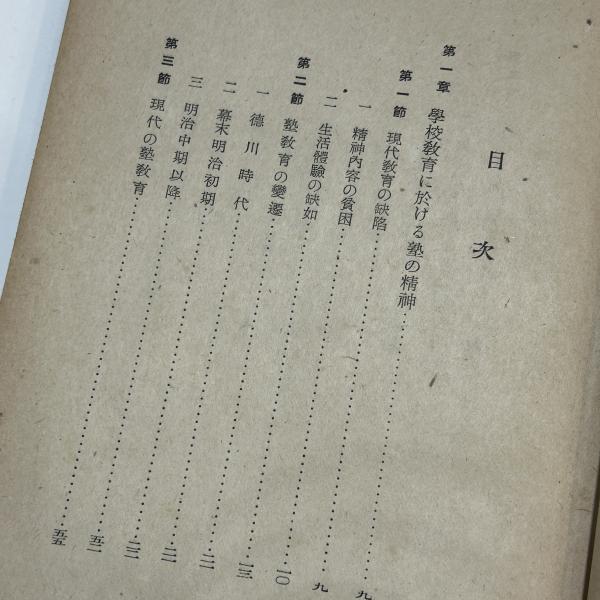 目次
第一章 學校教育に於ける塾の精神……九
第一節 現代教育の缺陷……九
一 精神內容の貧困……一〇
二 生活體驗の缺如……一三
第二節 塾教育の變遷……二一
一 德川時代……二一
二 幕末明治初期……
三 明治中期以降……五二
第三節 現代の塾教育……五五